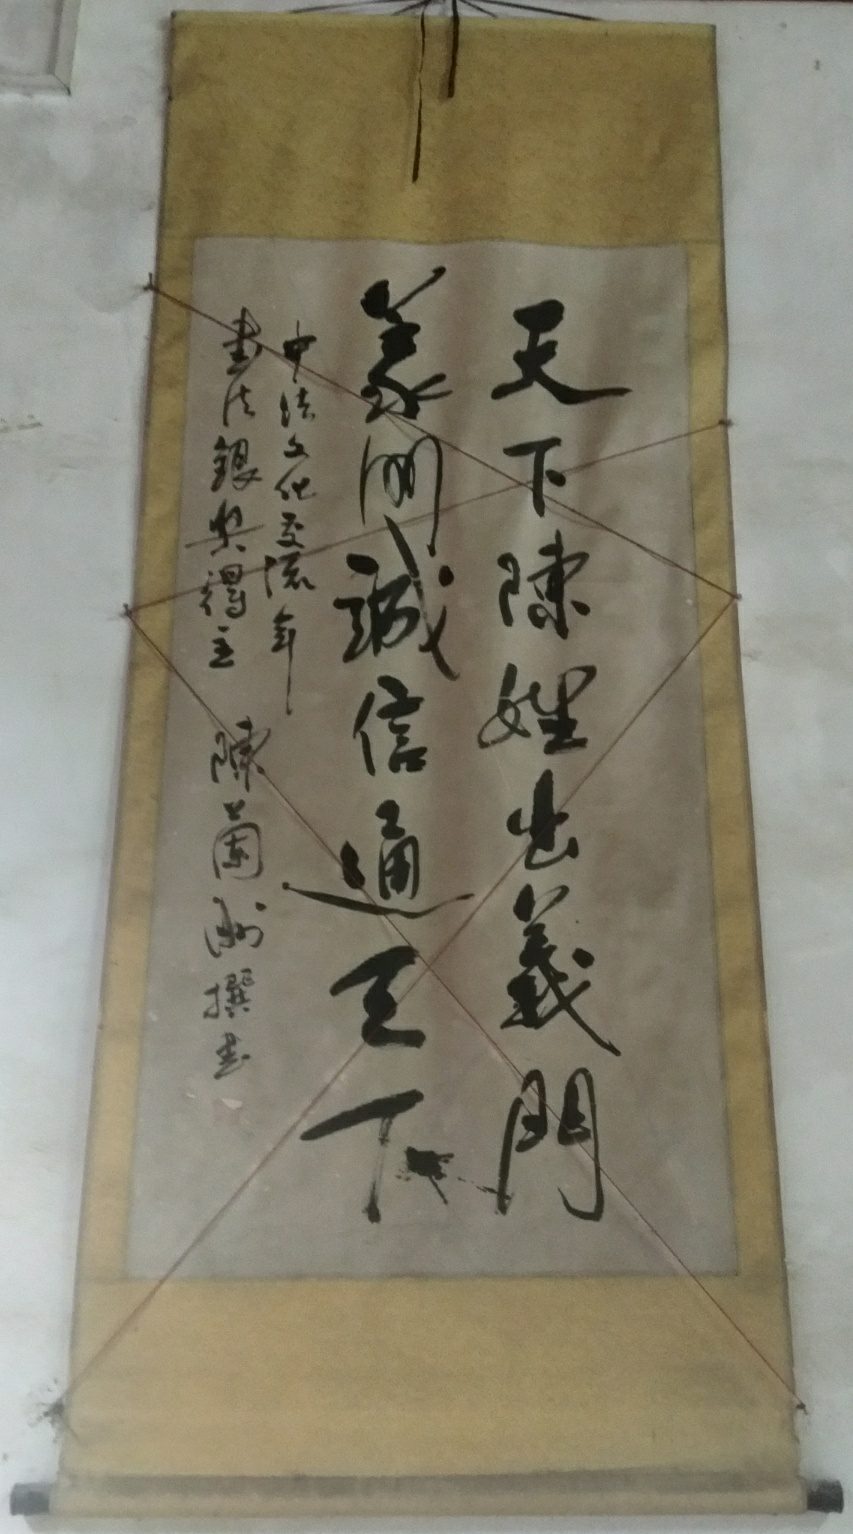 天下陳姓出義門
義門誠信通天下
中法文化交流年
書法銀奖得主 陳蘭洲撰书